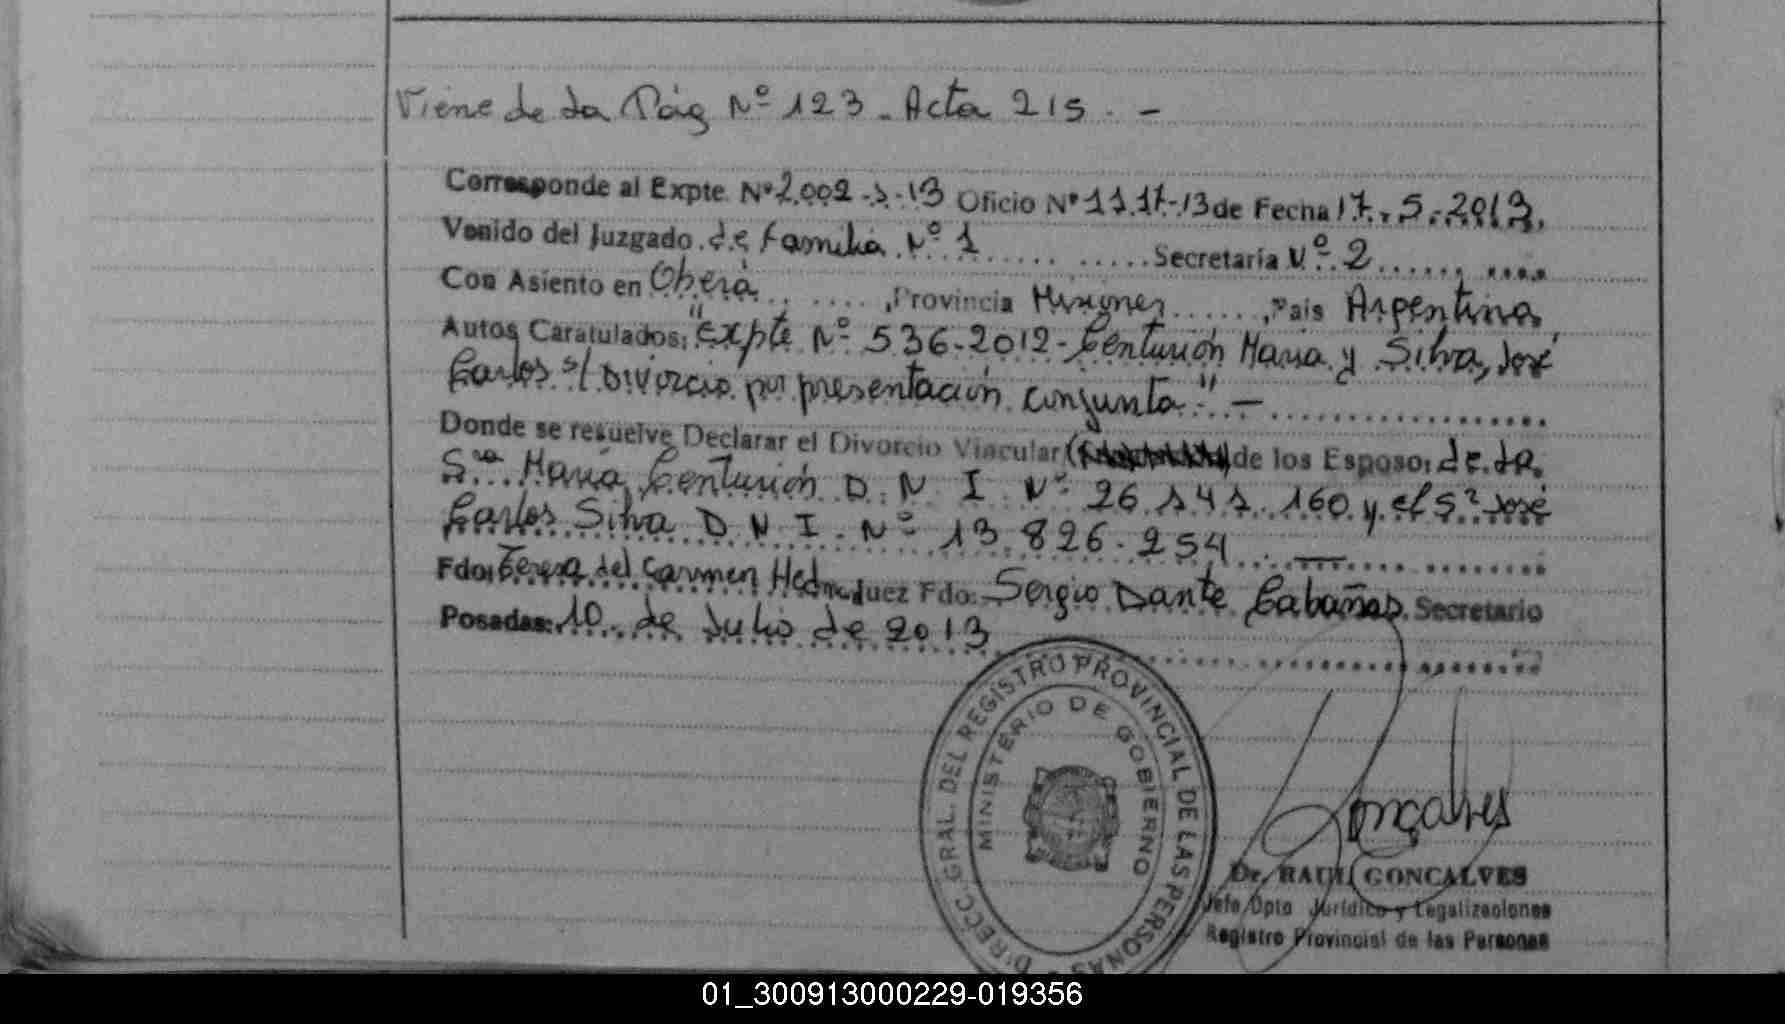 Viene de la Pág Nº 123 - Acta 215. -
Corresponde al Expte. Nº 2.002-S-13 Oficio Nº 1117-13 de Fecha 17.5.2013.
Venido del Juzgado de Familia Nº 1 Secretaría Nº 2
Con Asiento en Oberá, Provincia Misiones, Pais Argentina
Autos Caratulados: "Expte Nº 536-2012- Centurión María y Silva, José
Carlos s/ Divorcio por presentación conjunta" -
Donde se resuelve Declarar el Divorcio Vincular de los Esposo: de la
Sra María Centurión D.N.I. Nº 26.141.160 y el Sr José
Carlos Silva D.N.I. Nº 13.826.254. —
Fdo: Teresa del Carmen Juez Fdo: Sergio Dante Cabañas Secretario
Posadas: 10 de Julio de 2013
D'RECC. GRAL. DEL REGISTRO PROVINCIAL DE LAS PERSONAS -
MINISTERIO DE GOBIERNO
Gonçalves
Dr. RAUL GONCALVES
Jefe Dpto Jurídico y Legalizaciones
Registro Provincial de las Personas
01_300913000229-019356